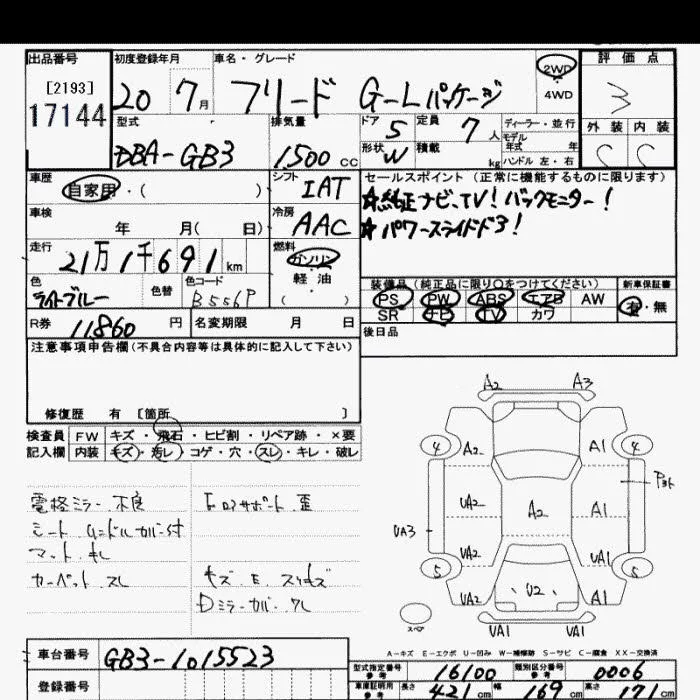 出品番号 初度登録年月 車名・グレード 2WD 評価点
[2193]
17144 20 7月 フリード G-Lパッケージ 4WD 3
型式 排気量 ドア 5 定員 7人 ディーラー・並行 外装 内装
モデル年式 年
DBA-GB3 1500cc 形状 W 積載 kg ハンドル 左・右 C C
車歴 自家用・( ) シフト IAT セールスポイント (正常に機能するものに限ります)
☆純正ナビ、TV!バックモニター!
車検 年 月( 日) 冷房 AAC ☆パワースライドドア!
走行 21万1千691km 燃料 ガソリン
軽油
( )
色 ライトブルー 色替 色コード B556P 装備品(純正品に限り○をつけてください) 新車保証書
PS PW ABS エアB AW 有・無
SR ナビ TV カワ
R券 11860円 名変期限 月 日 後日品
注意事項申告欄(不具合内容等は具体的に記入して下さい)
修復歴 有 [箇所 ]
検査員 FW キズ・飛石・ヒビ割・リペア跡・×要
記入欄 内装 キズ・汚レ・コゲ・穴・スレ・キレ・破レ
電格ミラー 不良 F ロアサポート 歪
シート ハンドル カバー付
マット キレ
カーペット スレ キズ E スリキズ
Dミラーカバー ワレ
A2 A3
4 A2 A1 4
UA2 A2 A1 Pヨト
UA3 UA2 UA1
5 UA2 U2 A1 5
スペア UA1 UA1
A-キズ E-エクボ U-凹み W-補修跡 S-サビ C-腐食 XX-交換済
車台番号 GB3-1015523
型式指定番号 参考 16100 類別区分番号 参考 0006
登録番号 車庫証明用 参考 長さ 421cm 幅 169cm 高さ 171cm